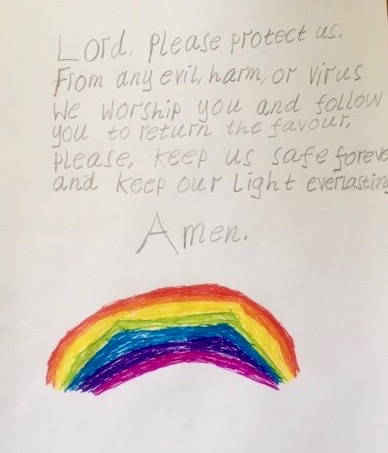 Lord, please protect us.
From any evil, harm, or virus
We worship you and follow
you to return the favour,
please, keep us safe foreve
and keep our Light everlasting
Amen.